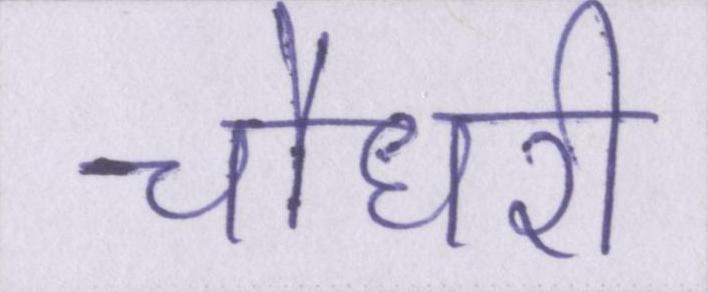 चौधरी